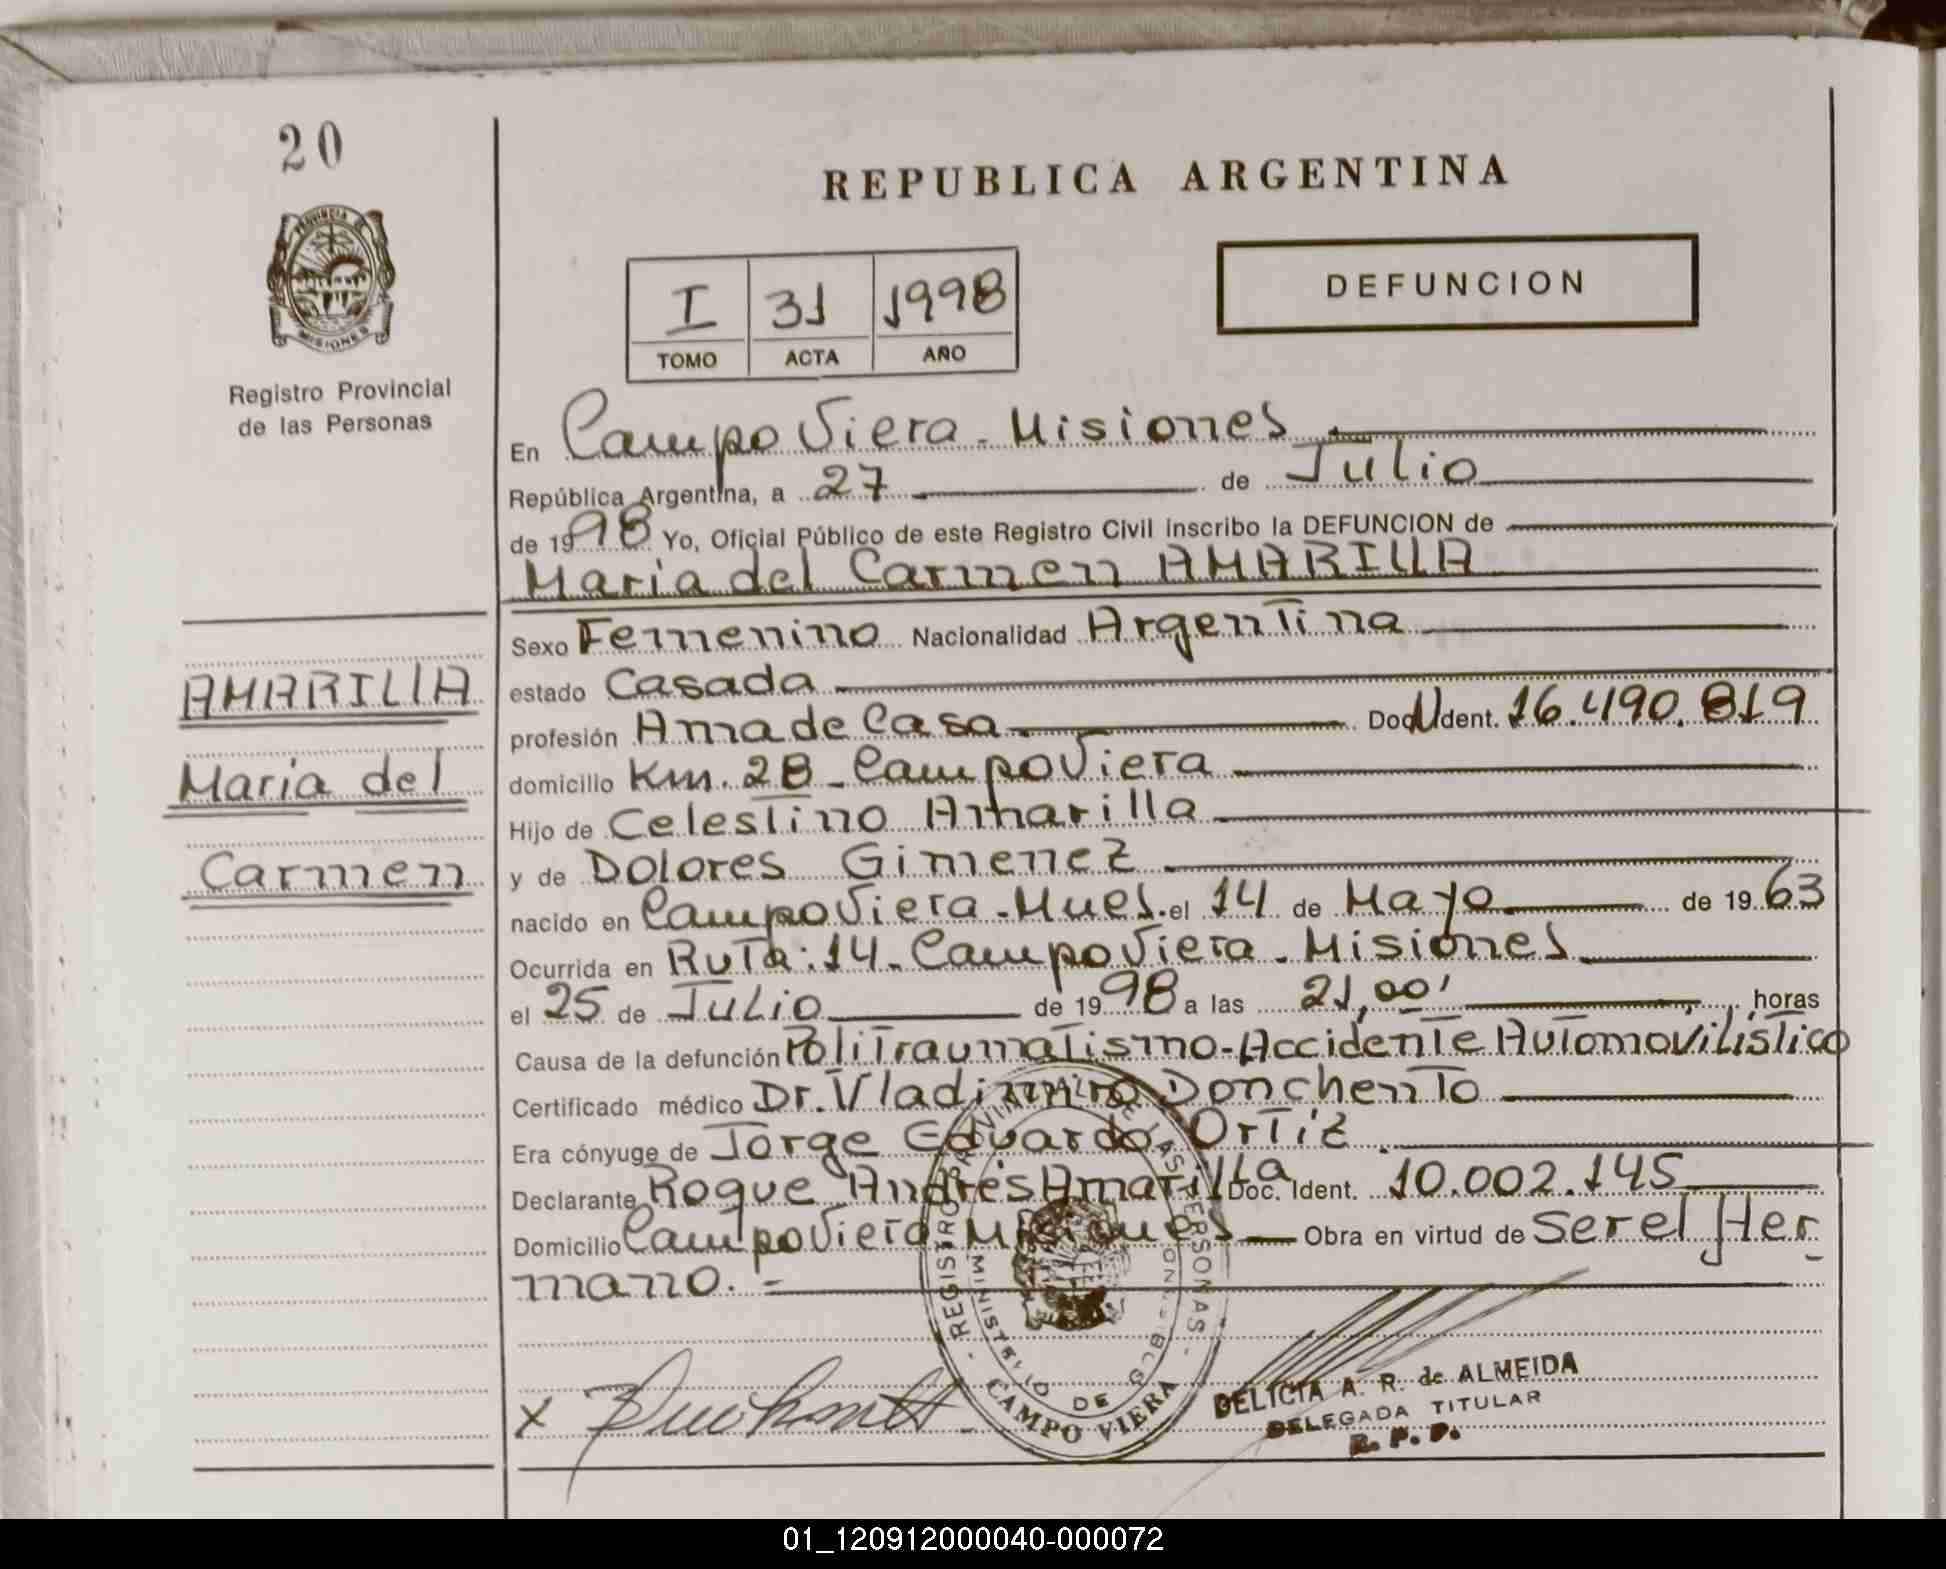 20
PROVINCIA DE
MISIONES
Registro Provincial
de las Personas
REPUBLICA ARGENTINA
I 31 1998
TOMO ACTA AÑO
DEFUNCION
En Campo Viera - Misiones
República Argentina, a 27 de Julio
de 1998 Yo, Oficial Público de este Registro Civil inscribo la DEFUNCION de
Maria del Carmen AMARILLA
AMARILLA
Maria del
Carmen
Sexo Femenino Nacionalidad Argentina
estado Casada
profesión Ama de Casa Doc. Ident. 16.490.819
domicilio Km. 28 - Campo Viera
Hijo de Celestino Amarilla
y de Dolores Gimenez
nacido en Campo Viera - Mnes. el 14 de Mayo de 1963
Ocurrida en Ruta: 14 - Campo Viera - Misiones
el 25 de Julio de 1998 a las 21,00' horas
Causa de la defunción Politraumatismo - Accidente Automovilistico
Certificado médico Dr. Vladimiro Donchento
Era cónyuge de Jorge Eduardo Ortiz
Declarante Roque Andrés Amarilla Doc. Ident. 10.002.145
Domicilio Campo Viera - Misiones Obra en virtud de Ser el Her
mano. -
- REGISTRO PROVINCIAL DE LAS PERSONAS -
MINISTERIO DE GOBIERNO
CAMPO VIERA
x
DELICIA A. R. de ALMEIDA
DELEGADA TITULAR
R. P. P.
01_120912000040-000072